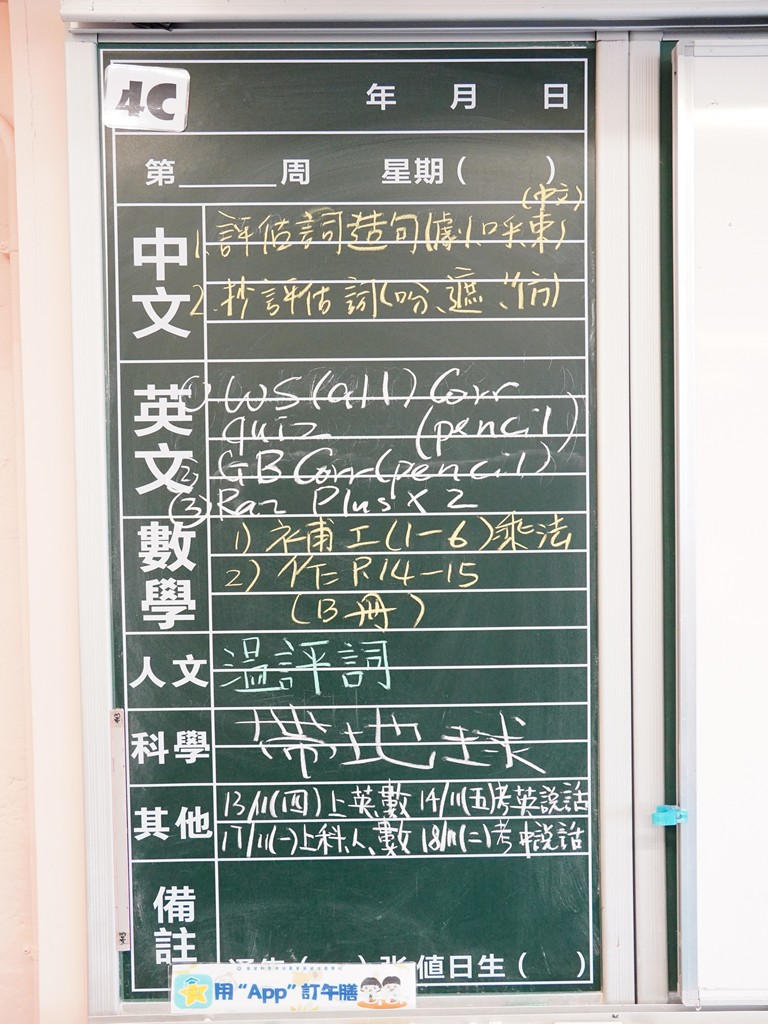 4C
年 月 日
第______周 星期( )
(中文)
中文
1. 評估詞造句(劇、呼、東)
2. 抄評估詞(吩、遮、份)
英文
① WS(all) Corr
quiz (pencil)
② GB Corr(pencil)
③ Raz Plus x 2
數學
1) 補工(1-6)乘法
2) 作 P.14-15
(B冊)
人文
溫評詞
科學
帶地球
其他
13/11(四)上英數 14/11(五)考英說話
17/11(一)上科、人、數 18/11(二)考中說話
備註
( )張 值日生( )
用“App”訂午膳